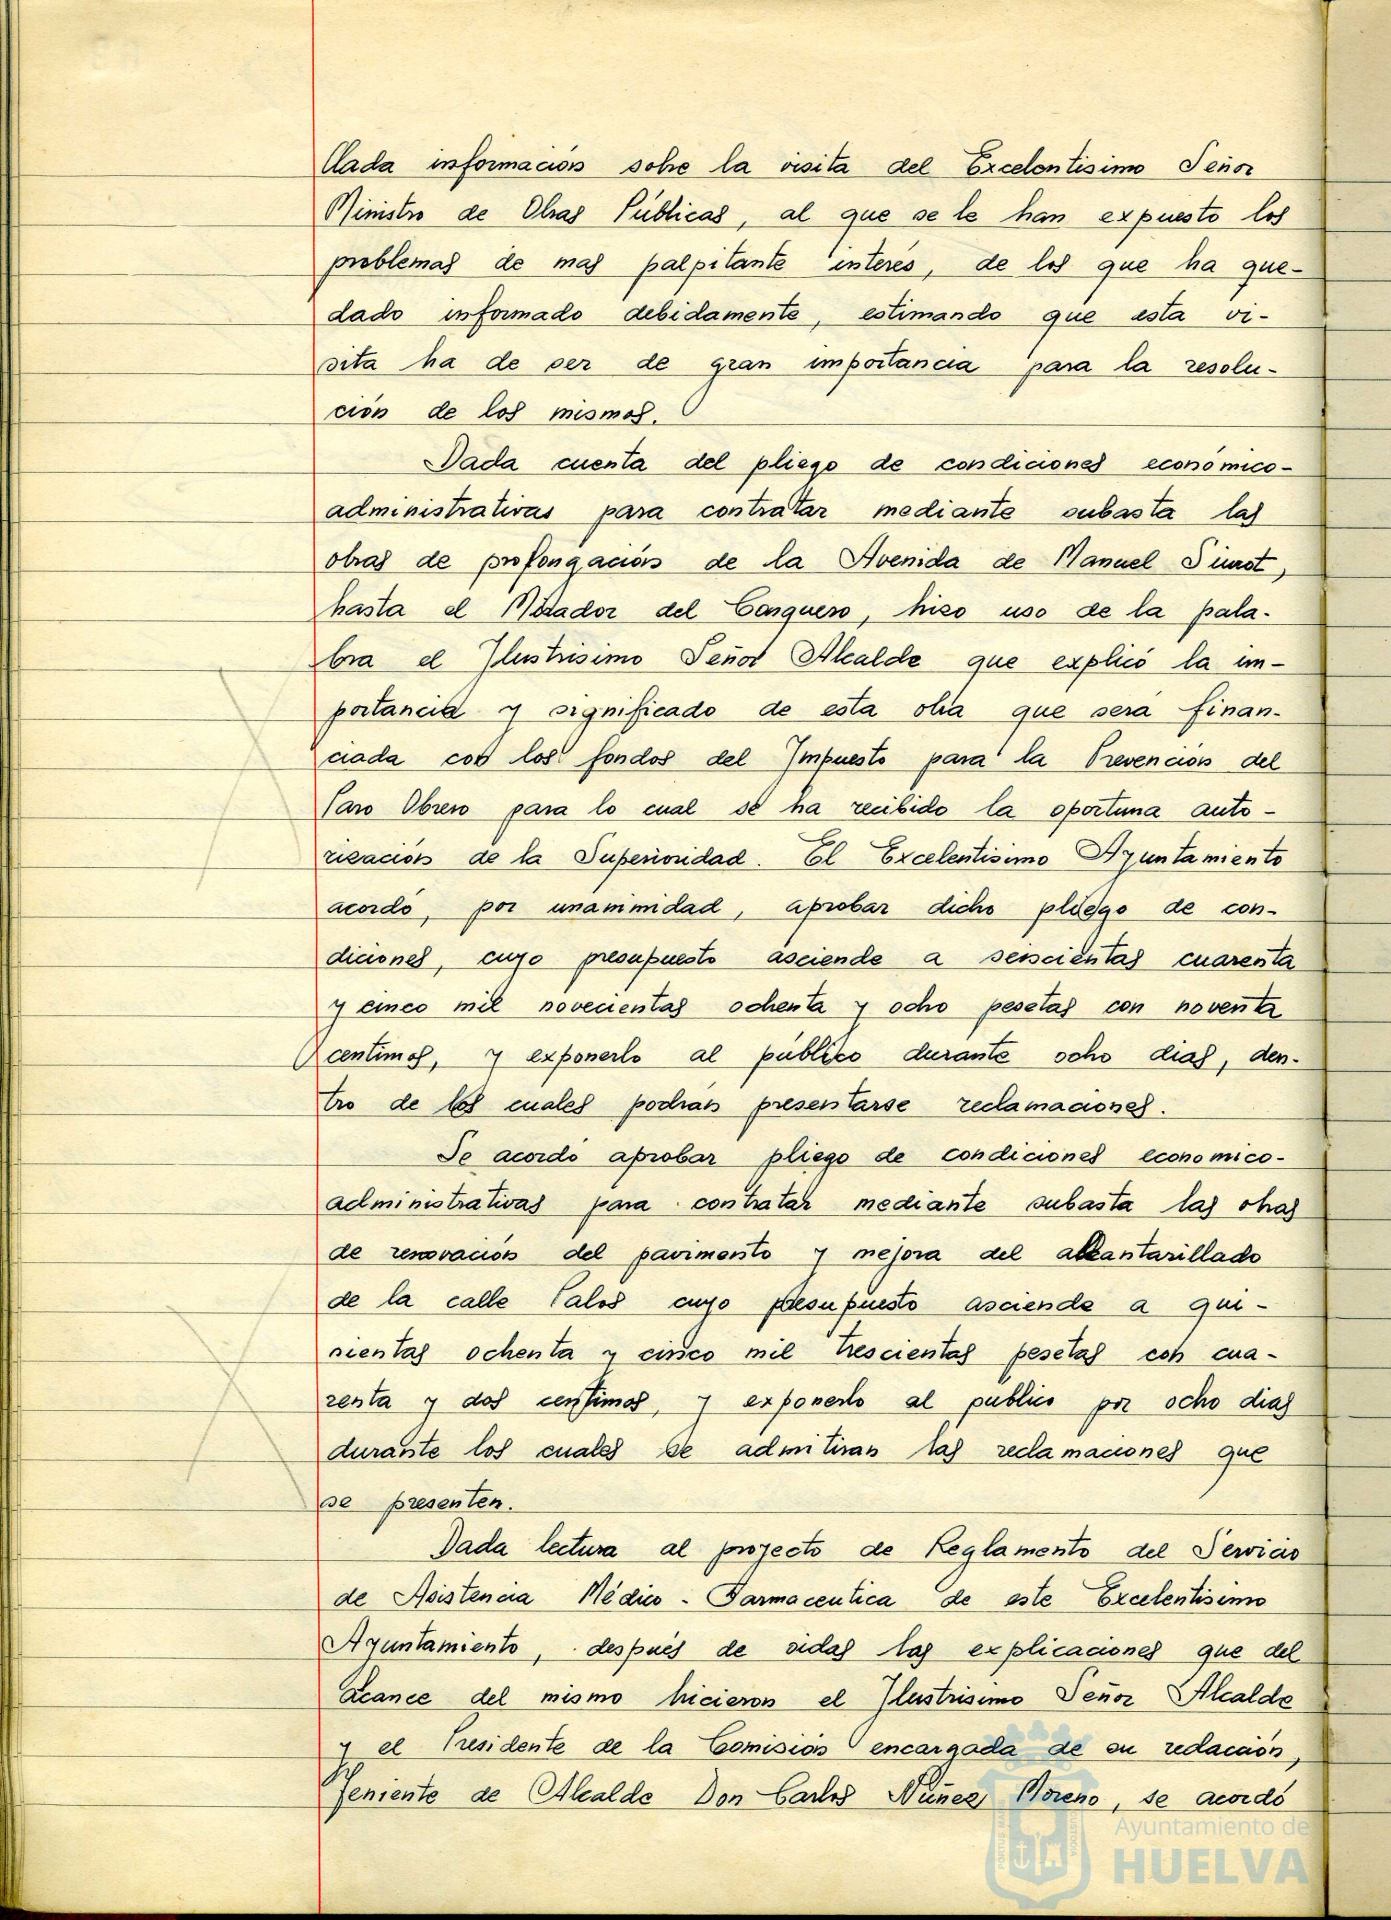 llada información sobre la visita del Excelentisimo Señor
Ministro de Obras Públicas, al que se le han expuesto los
problemas de mas palpitante interés, de los que ha que-
dado informado debidamente, estimando que esta vi-
sita ha de ser de gran importancia para la resolu-
ción de los mismos.
Dada cuenta del pliego de condiciones económico-
administrativas para contratar mediante subasta las
obras de prolongación de la Avenida de Manuel Siurot,
hasta el Mirador del Conquero, hizo uso de la pala-
bra el Ilustrisimo Señor Alcalde que explicó la im-
portancia y significado de esta obra que será finan-
ciada con los fondos del Impuesto para la Prevención del
Paro Obrero para lo cual se ha recibido la oportuna auto-
rización de la Superioridad. El Excelentisimo Ayuntamiento
acordó, por unanimidad, aprobar dicho pliego de con-
diciones, cuyo presupuesto asciende a seiscientas cuarenta
y cinco mil novecientas ochenta y ocho pesetas con noventa
centimos, y exponerlo al público durante ocho dias, den-
tro de los cuales podrán presentarse reclamaciones.
Se acordó aprobar pliego de condiciones economico-
administrativas para contratar mediante subasta las obras
de renovación del pavimento y mejora del alcantarillado
de la calle Palos cuyo presupuesto asciende a qui-
nientas ochenta y cinco mil trescientas pesetas con cua-
renta y dos centimos, y exponerlo al publico por ocho dias
durante los cuales se admitiran las reclamaciones que
se presenten.
Dada lectura al proyecto de Reglamento del Servicio
de Asistencia Médico-Farmaceutica de este Excelentisimo
Ayuntamiento, después de oidas las explicaciones que del
alcance del mismo hicieron el Ilustrisimo Señor Alcalde
y el Presidente de la Comisión encargada de su redacción,
Teniente de Alcalde Don Carlos Núñez Moreno, se acordó
Ayuntamiento de
HUELVA